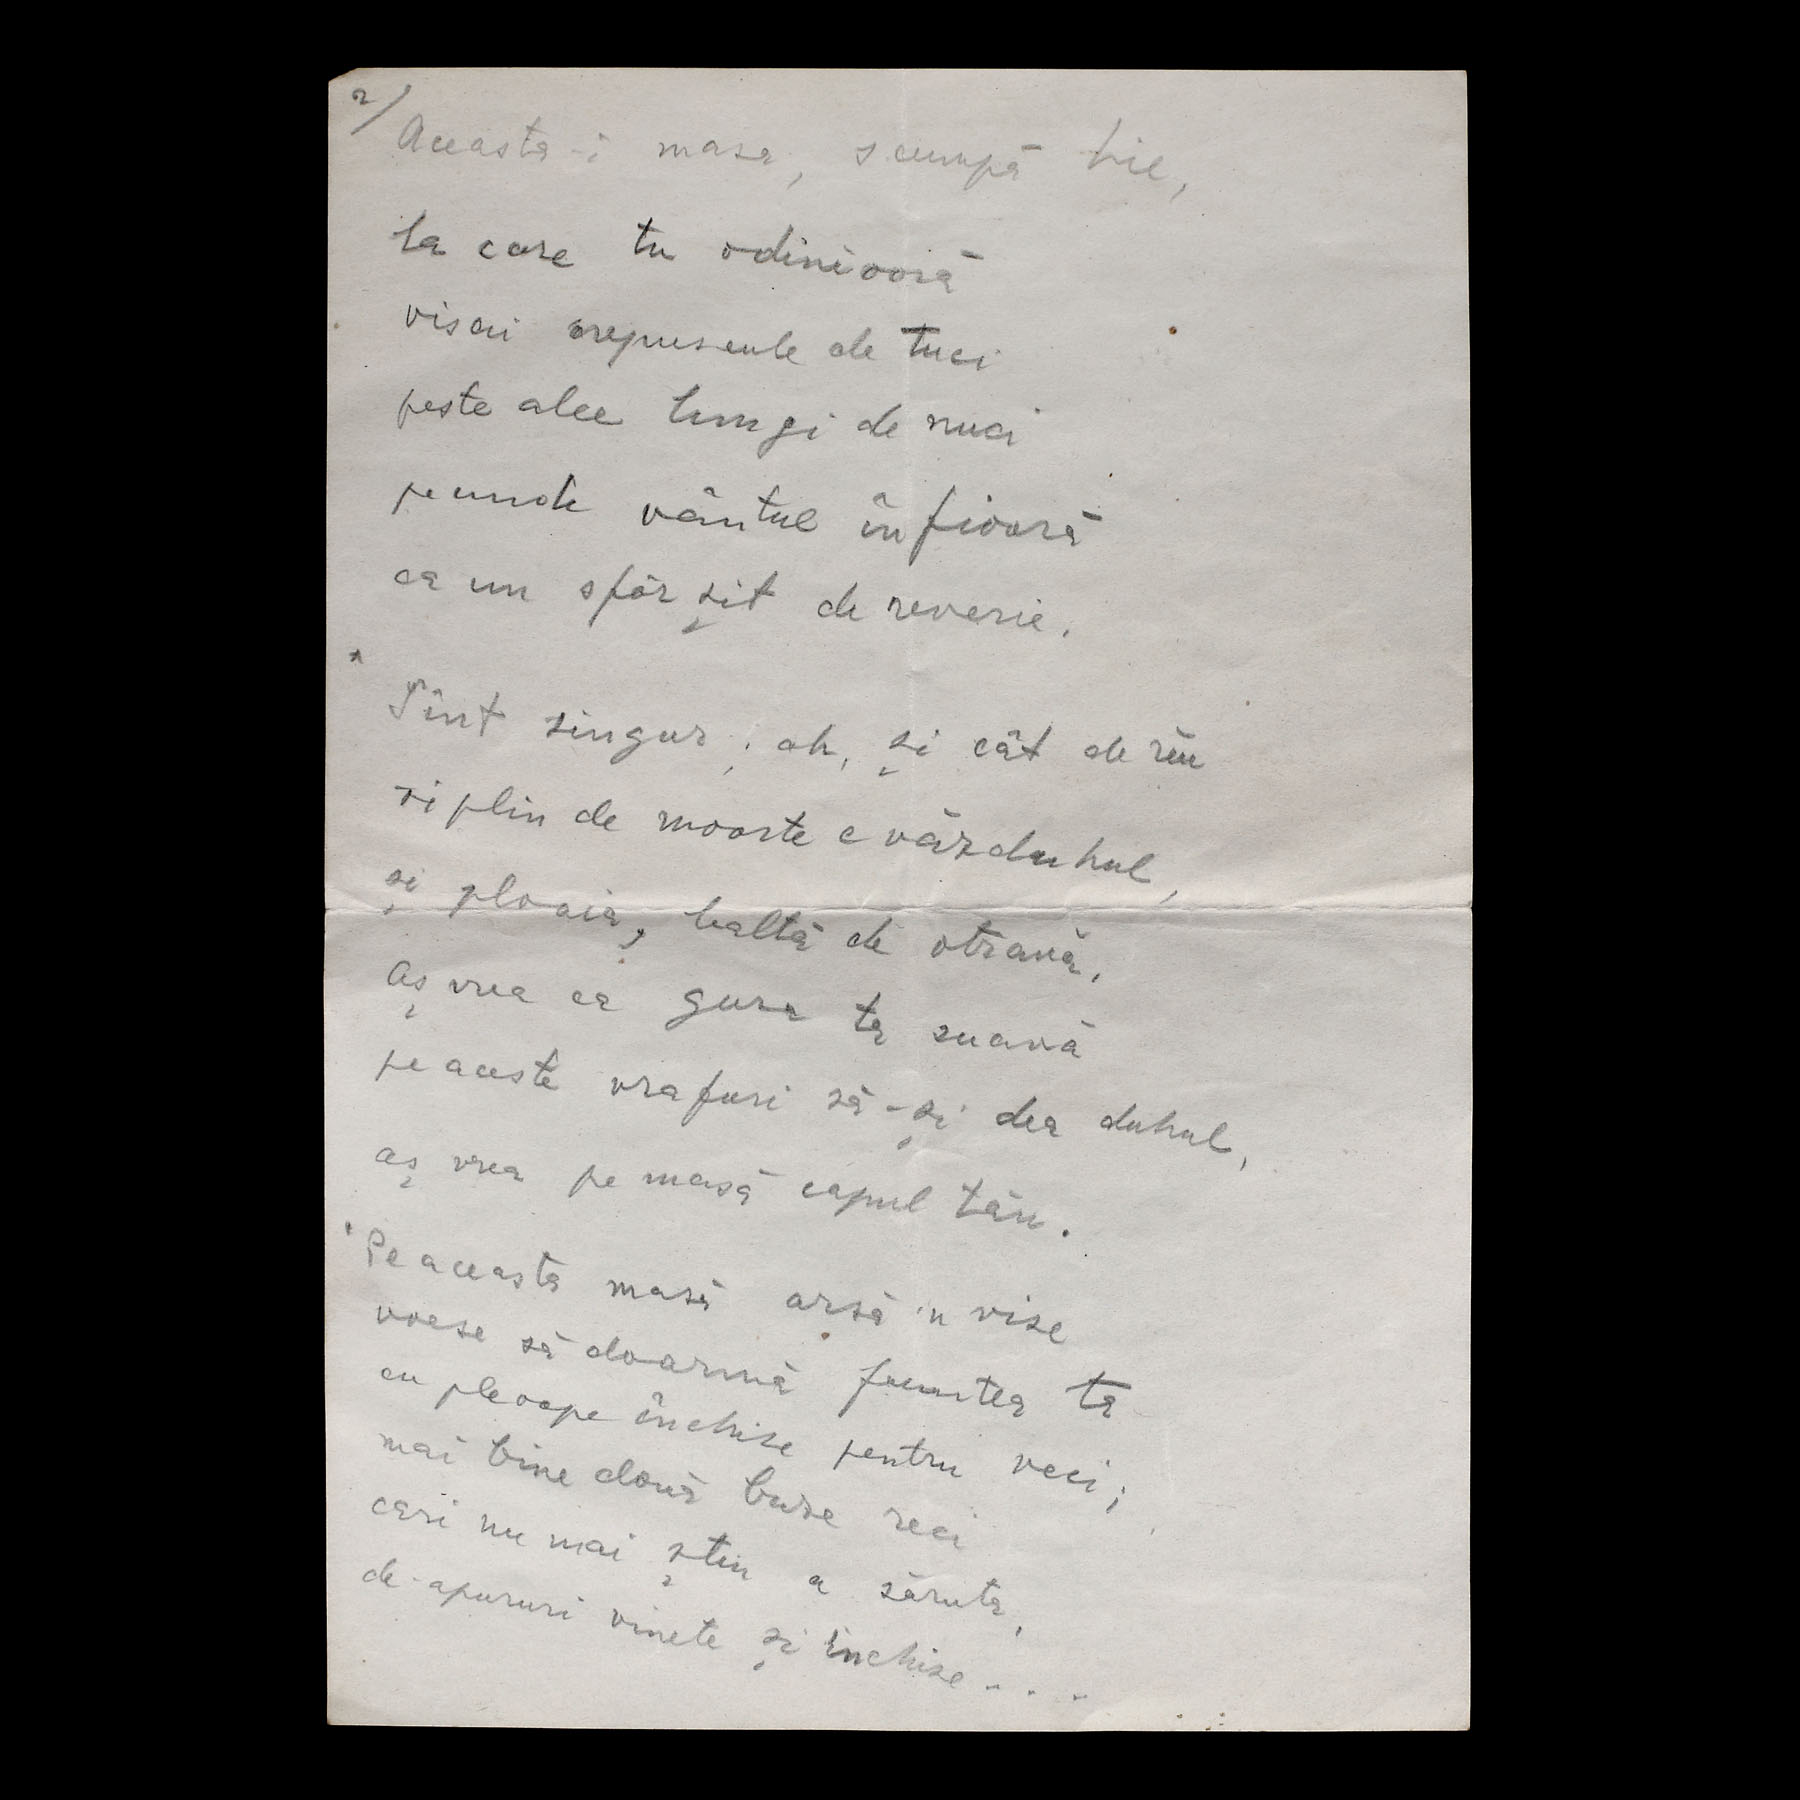 2/
Aceasta-i masa, scumpă Lie,
la care tu odinioară
visai crepuscule de tuci
peste alee lungi de nuci
pe unde vântul înfioară
ca un sfârșit de reverie.
Sînt singur, oh, și cât de rău
si plin de moarte e văzduhul,
și ploaia, baltă de otravă,
Aș vrea ca gura ta suavă
pe aceste vrafuri să-și dea duhul,
aș vrea pe masă capul tău.
Pe aceasta masă arsă 'n vise
voesc să doarmă fruntea ta
cu pleoape închise pentru veci;
mai bine două buze reci
cari nu mai știu a săruta,
de-apururi vinete și închise...